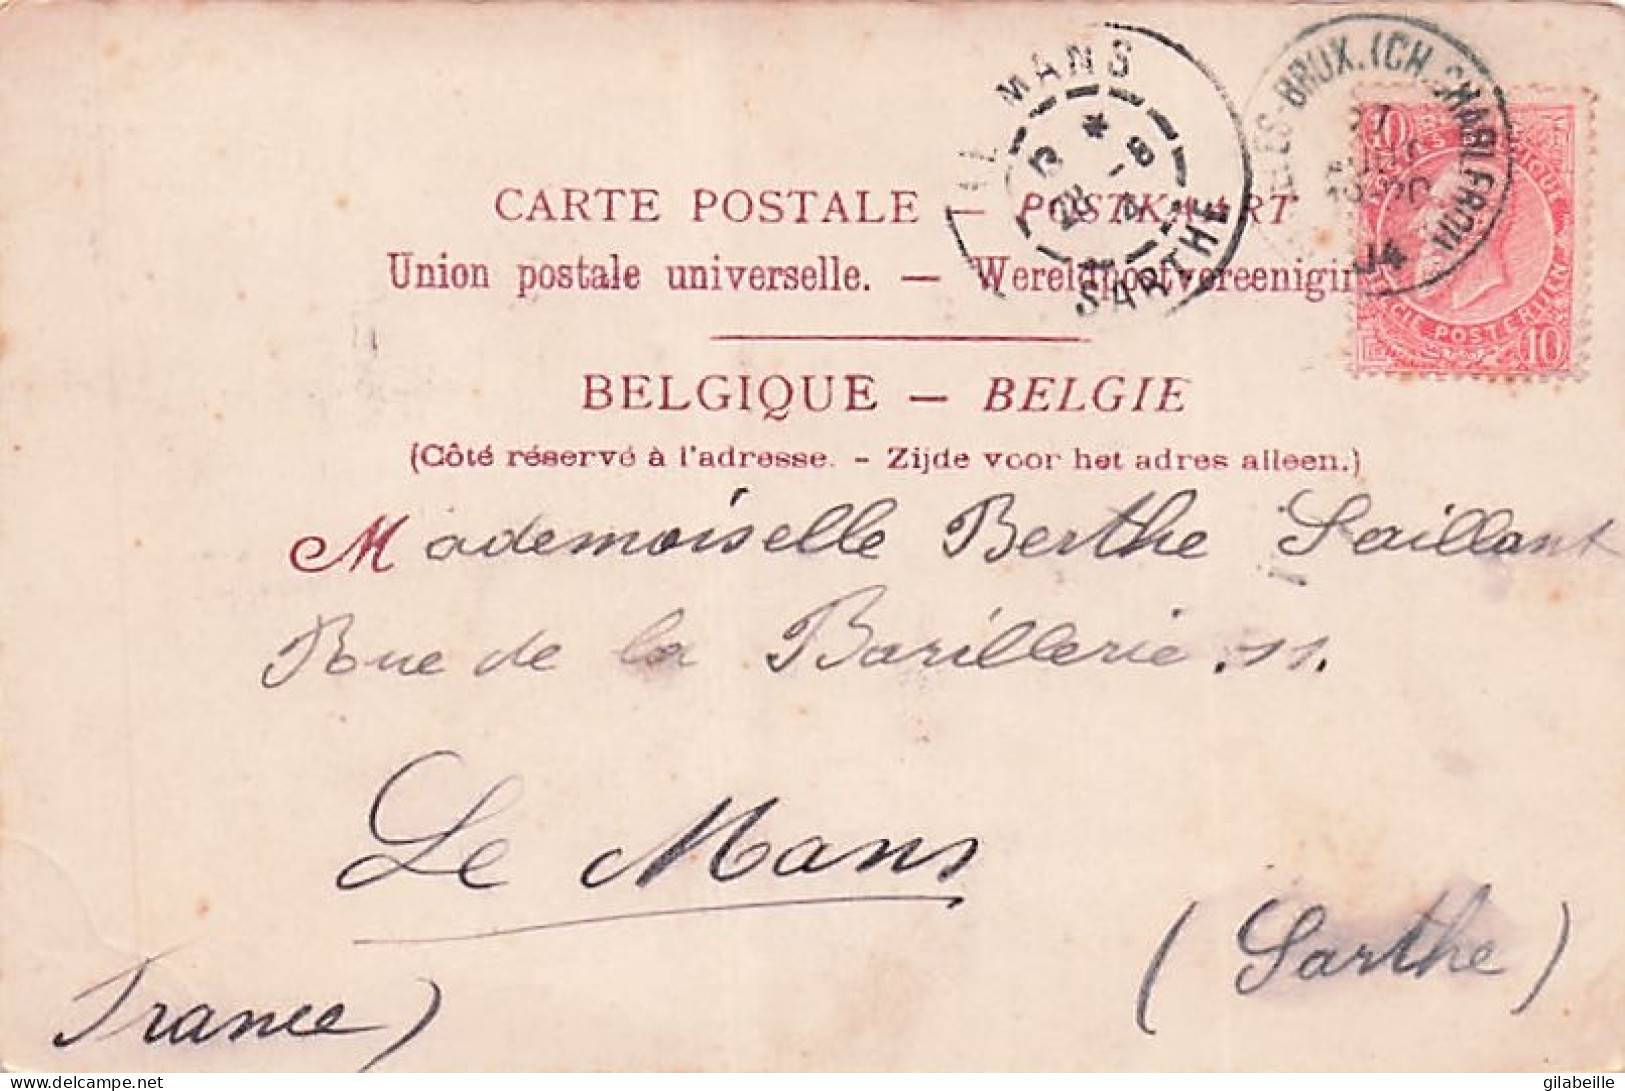 CARTE POSTALE — POSTKAART
Union postale universelle. — Wereldpostvereeniging
BELGIQUE — BELGIE
(Côté réservé à l'adresse. - Zijde voor het adres alleen.)
LE MANS
*
28 - 8
4
SARTHE
BRUX. (CH. CHARLEROI)
04
10
10
POSTERIJEN
Mademoiselle Berthe Saillant
Rue de la Barillerie. 11.
Le Mans
(Sarthe)
France)
www.delcampe.net
gilabeille